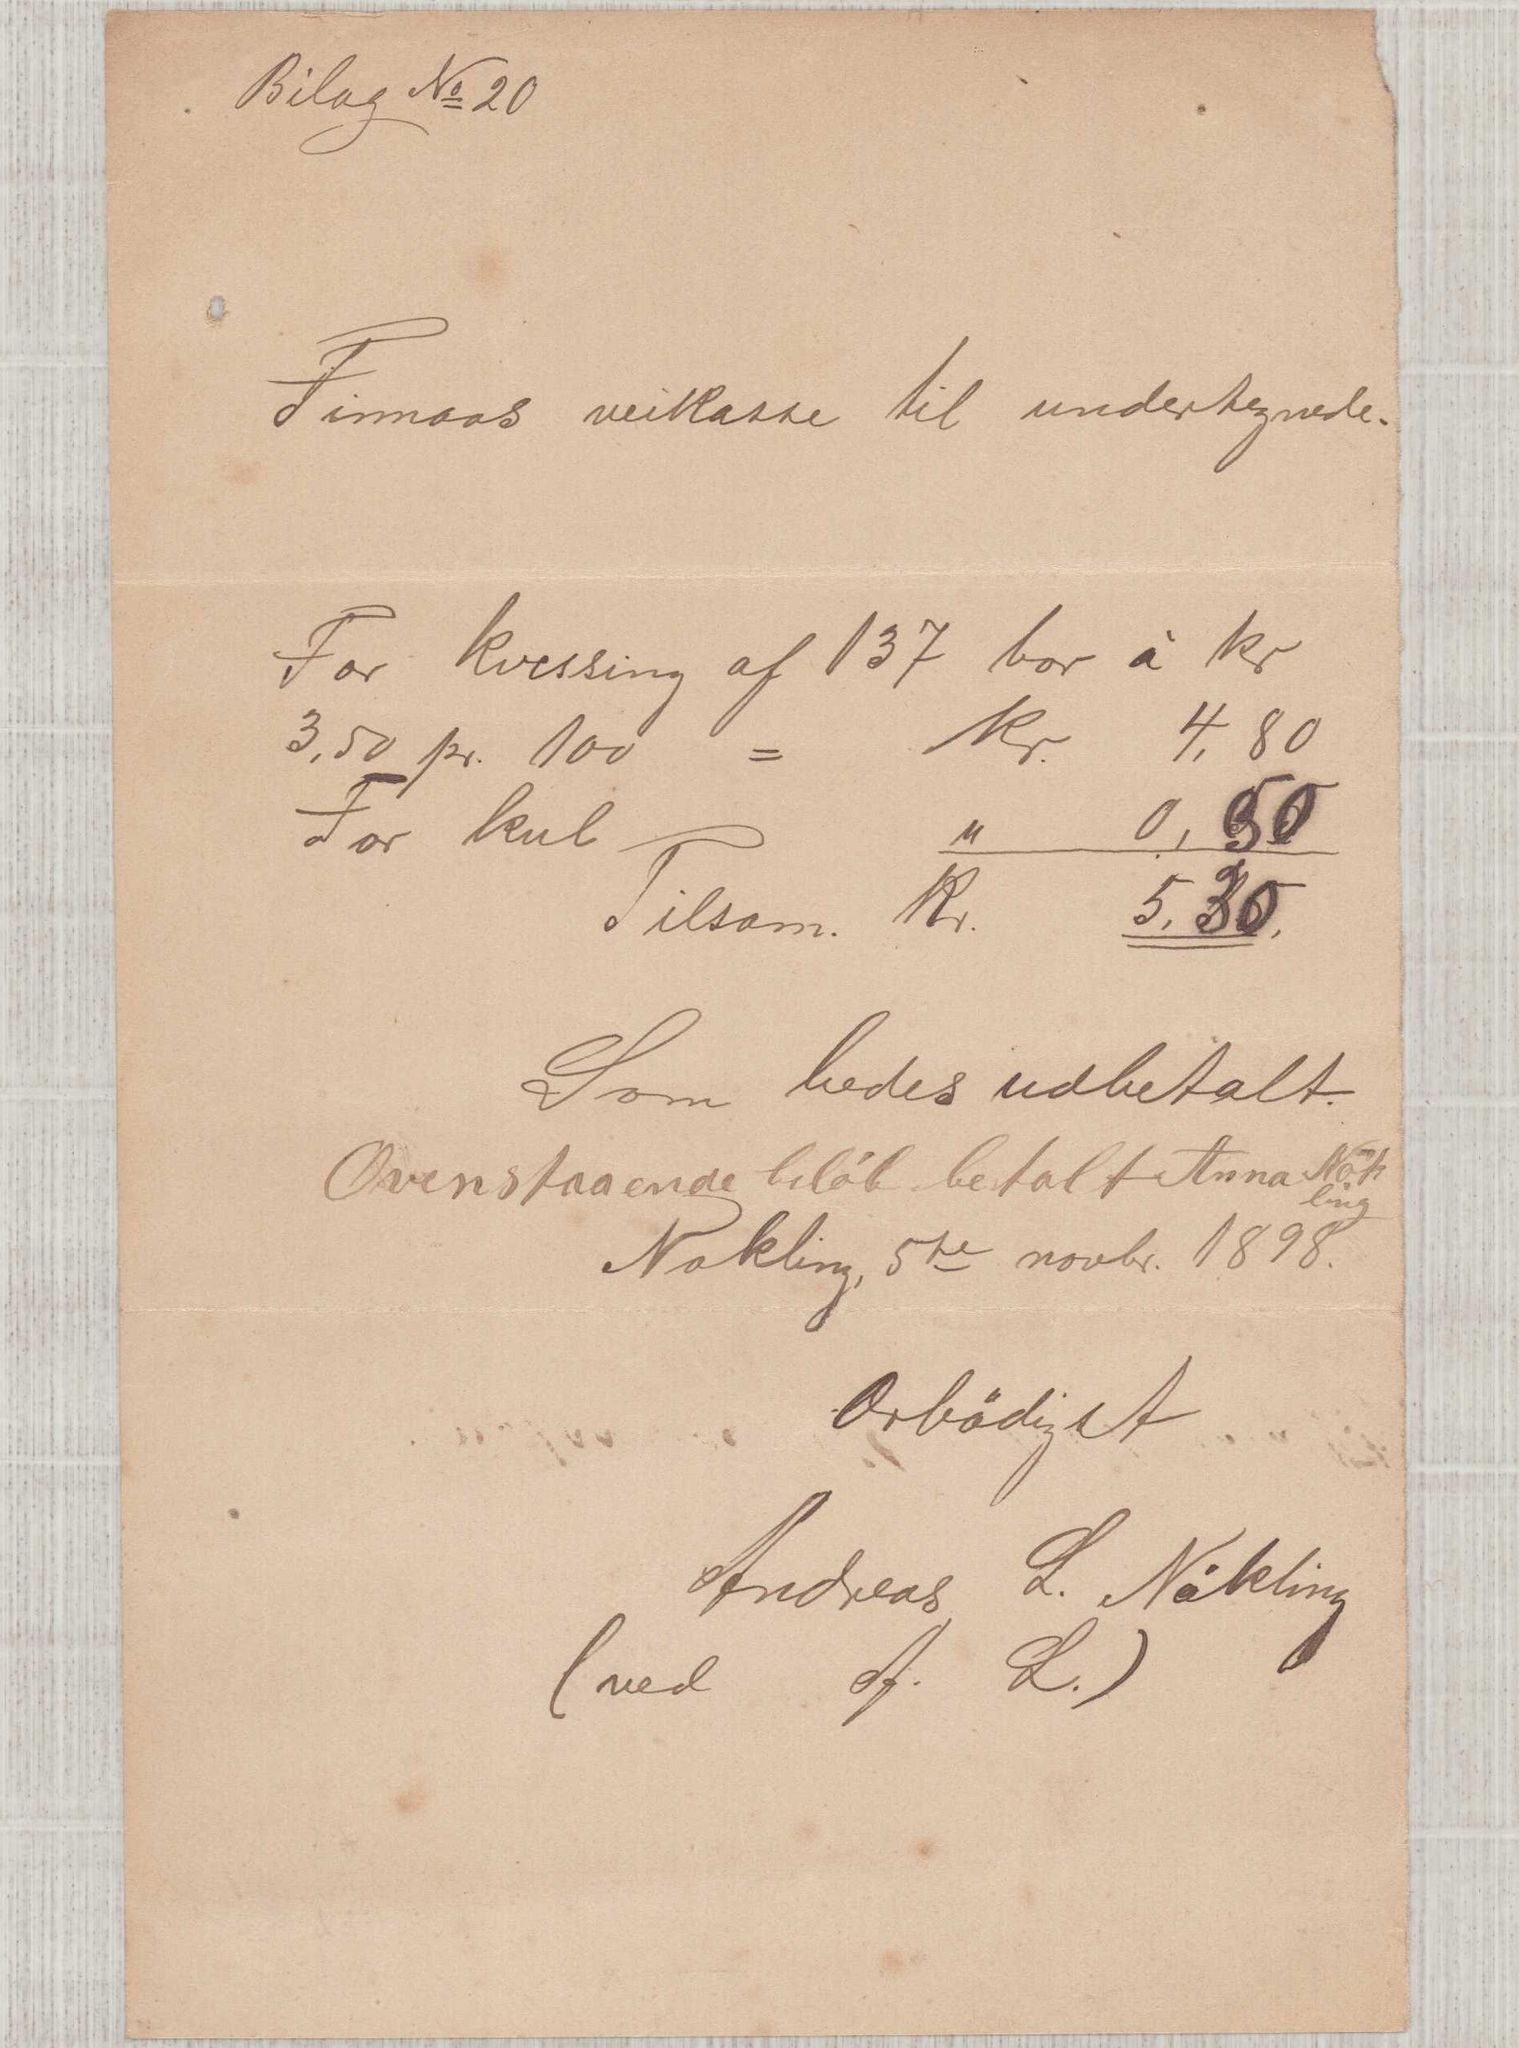 Bilag No 20
Finnaas veikasse til undertegnede.
For kvessing af 137 bor à kr
3,50 pr. 100 = Kr. 4,80
For kul " 0,50
Tilsam. Kr. 5,30.
Som bedes udbetalt.
Ovenstaaende beløb betalt Anna Nök
ling
Nökling, 5te novbr. 1898.
Ærbödigst
Andreas L. Nökling
(ved A. L.)